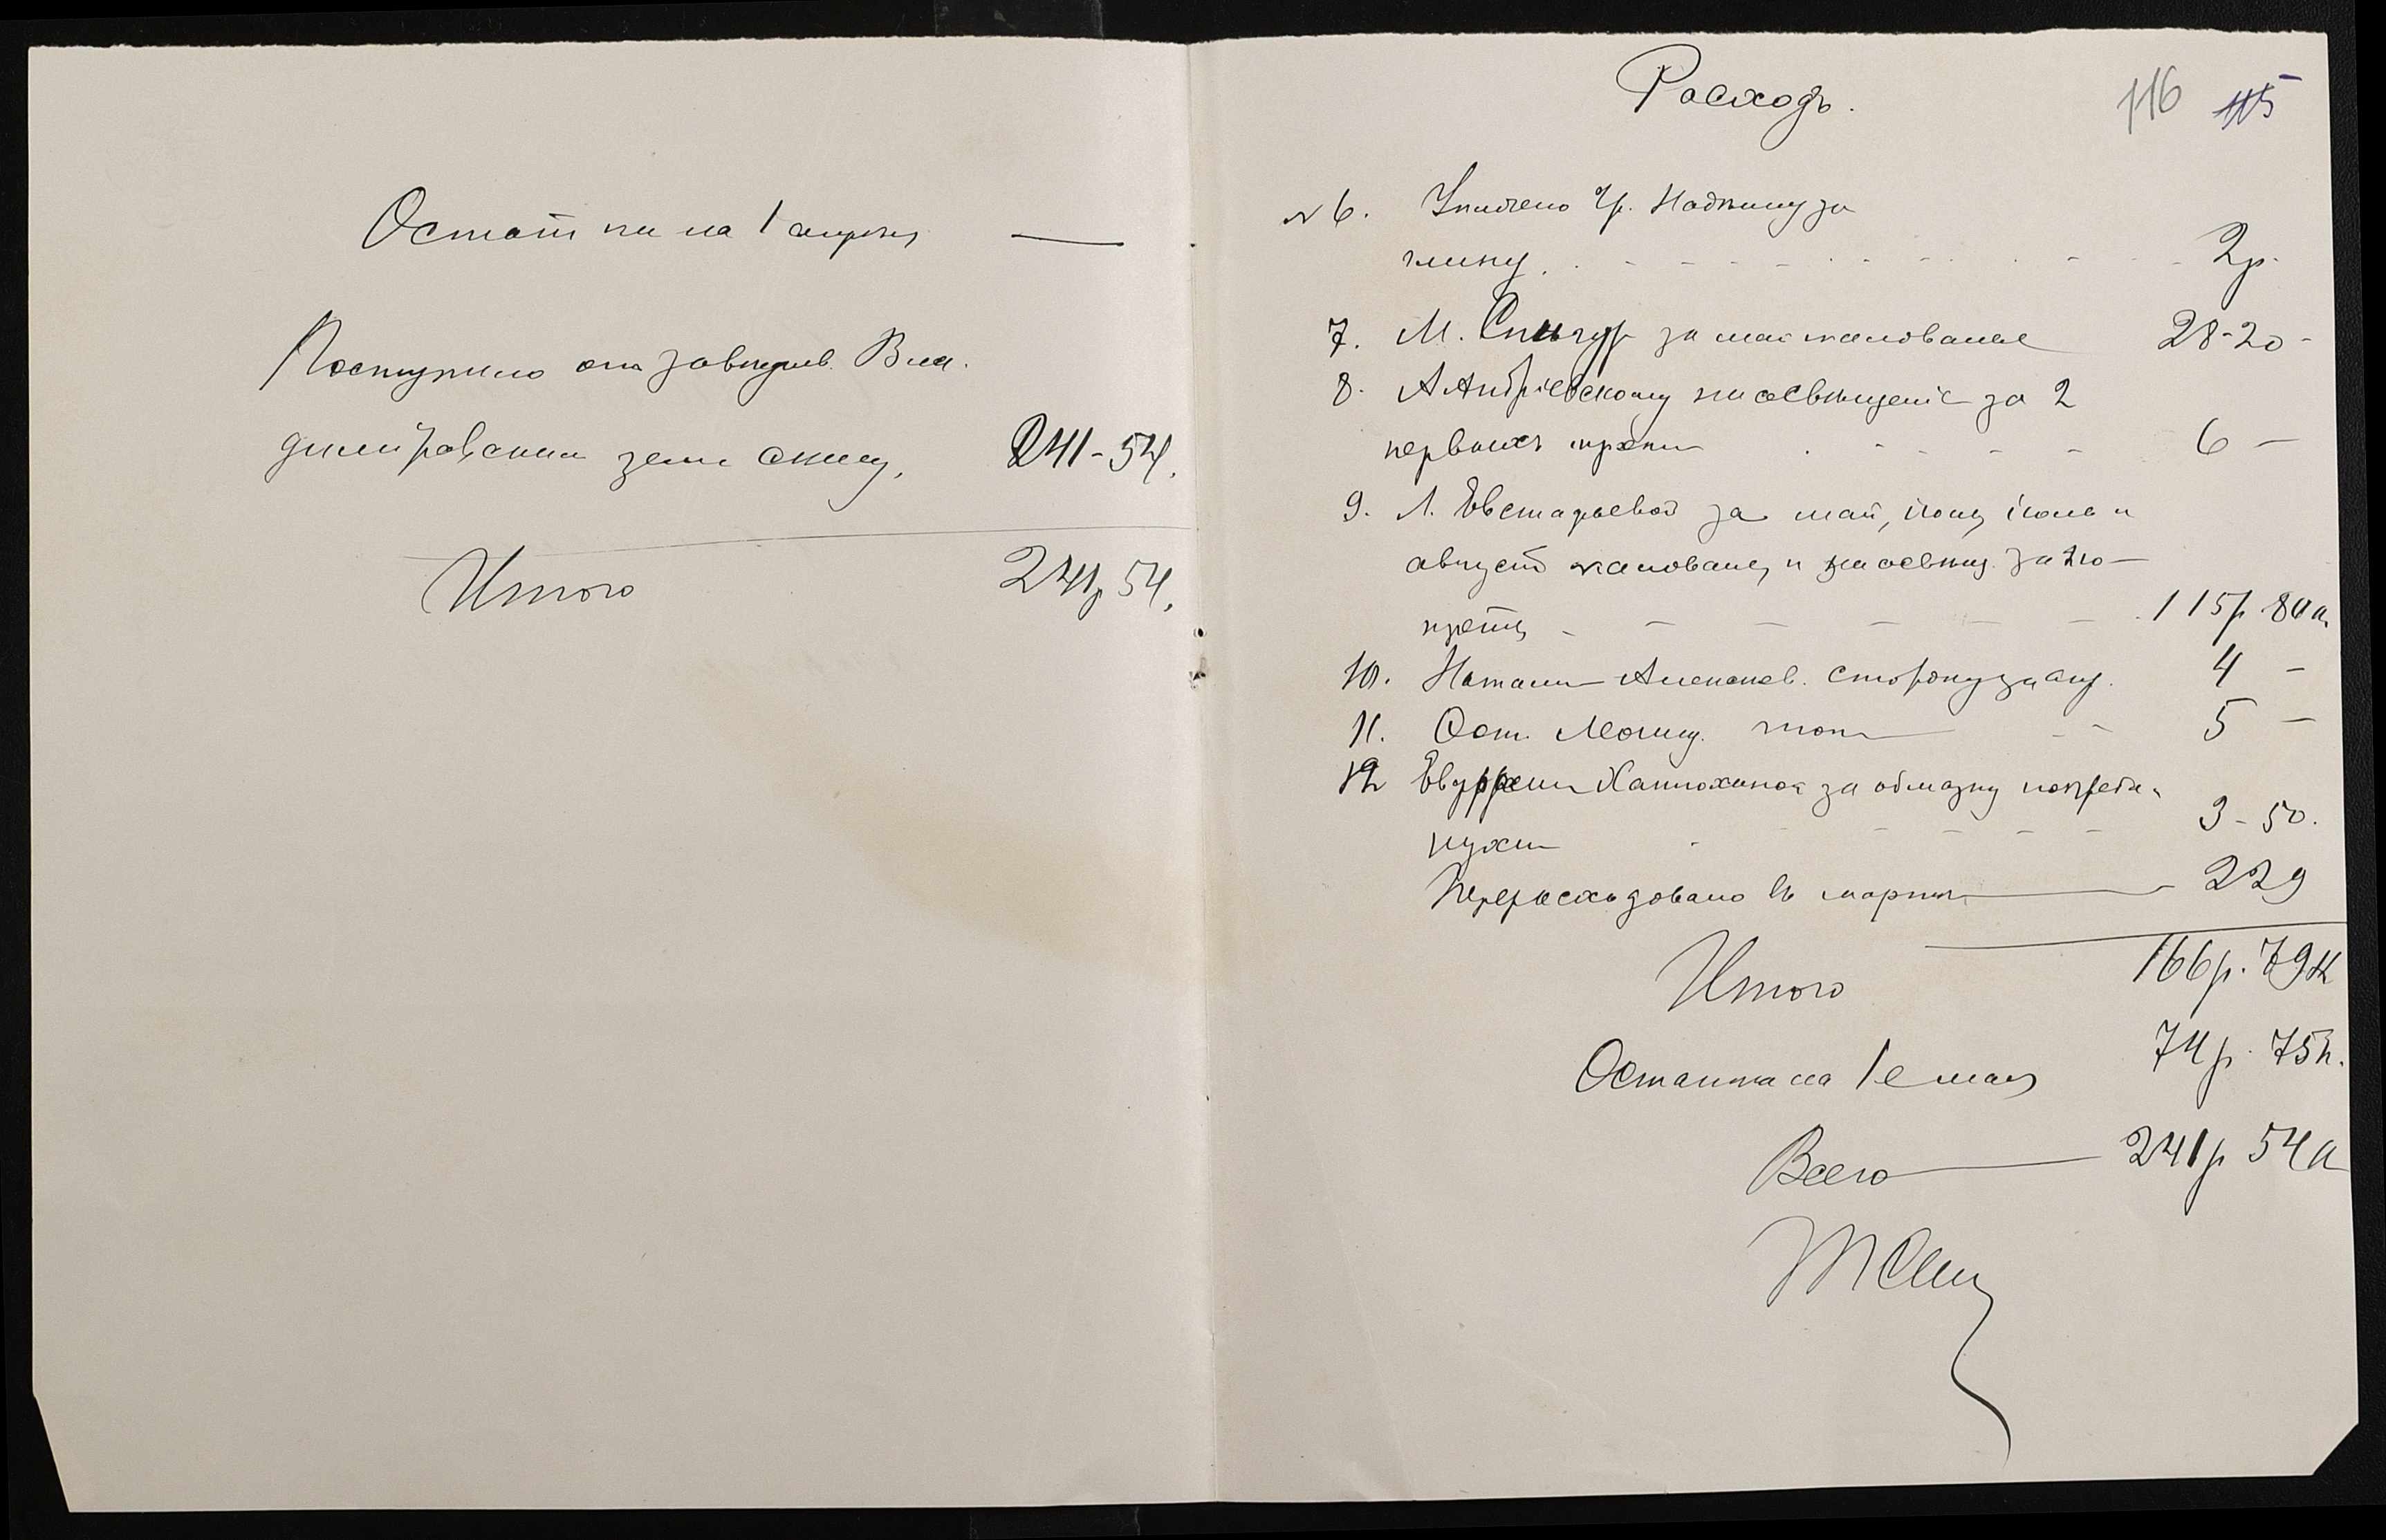 Остатки на 1 апреля —
Поступило от заведыв. Вла-
димировским земл скимъ. 241-54.
Итого 241р 54.
Расходъ. 116 115
№ 6. Уплочено Гр. за
глину. 2р.
7. М. Снигур за май жалованье 28-20-
8. А Андріевскому на освѣщеніе за 2
первыхъ трети 6 —
9. Л. Евстафьевой за май, іюнь, іюль и
август жалованья и на освѣщ. за 2ю
треть 115р 80к.
10. Наталии Алексеев. сторожу за апр. 4 —
11. 5 —
12 за обмазку погреба и
кухни 3-50.
Перерасходовано въ мартѣ 2 29
Итого 166р. 79к
Остатка на 1е мая 74р. 75к.
Всего 241р 54к